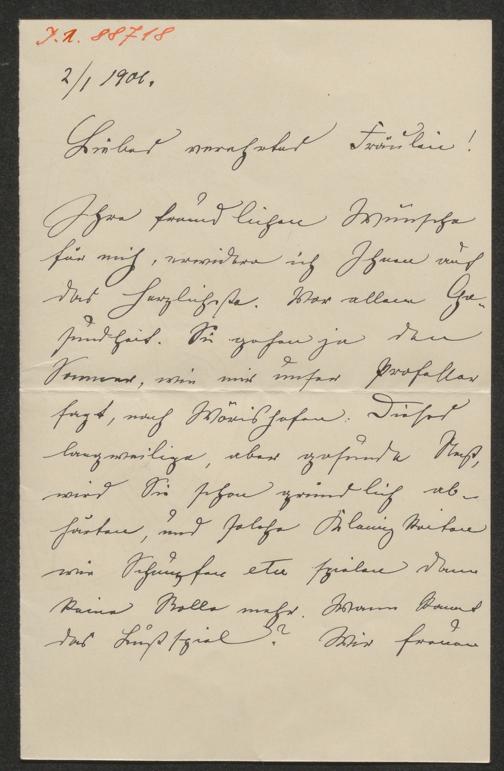 J.N. 88718
2/1 1901.
Liebes verehrtes Fräulein!
Ihre freundlichen Wünsche
für mich, erwidere ich Ihnen auf
das Herzlichste. Vor allem Ge-
sundheit. Sie gehen ja den
Sommer, wie mir unser Professor
sagt, nach Wörishofen. Dieses
langweilige, aber gesunde Nest,
wird Sie schon gründlich ab-
härten, und solche Kleinigkeiten
wie Schnupfen etc spielen dann
keine Rolle mehr. Wann kommt
das Lustspiel? Wir freuen